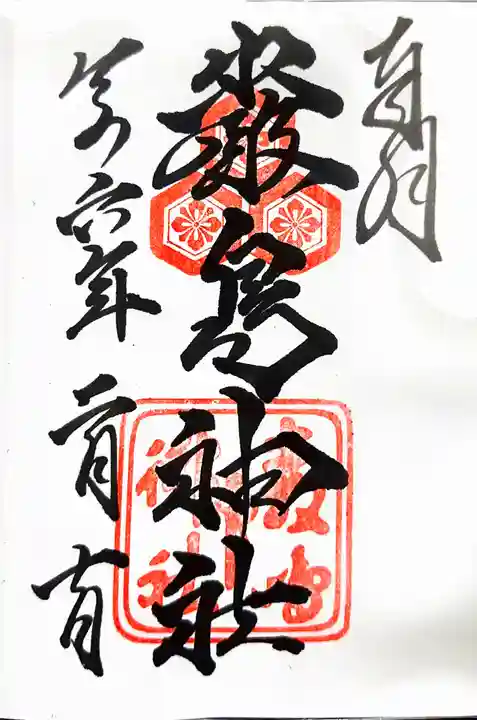 奉拝
嚴島神社
令六年二月十日
嚴島
神社